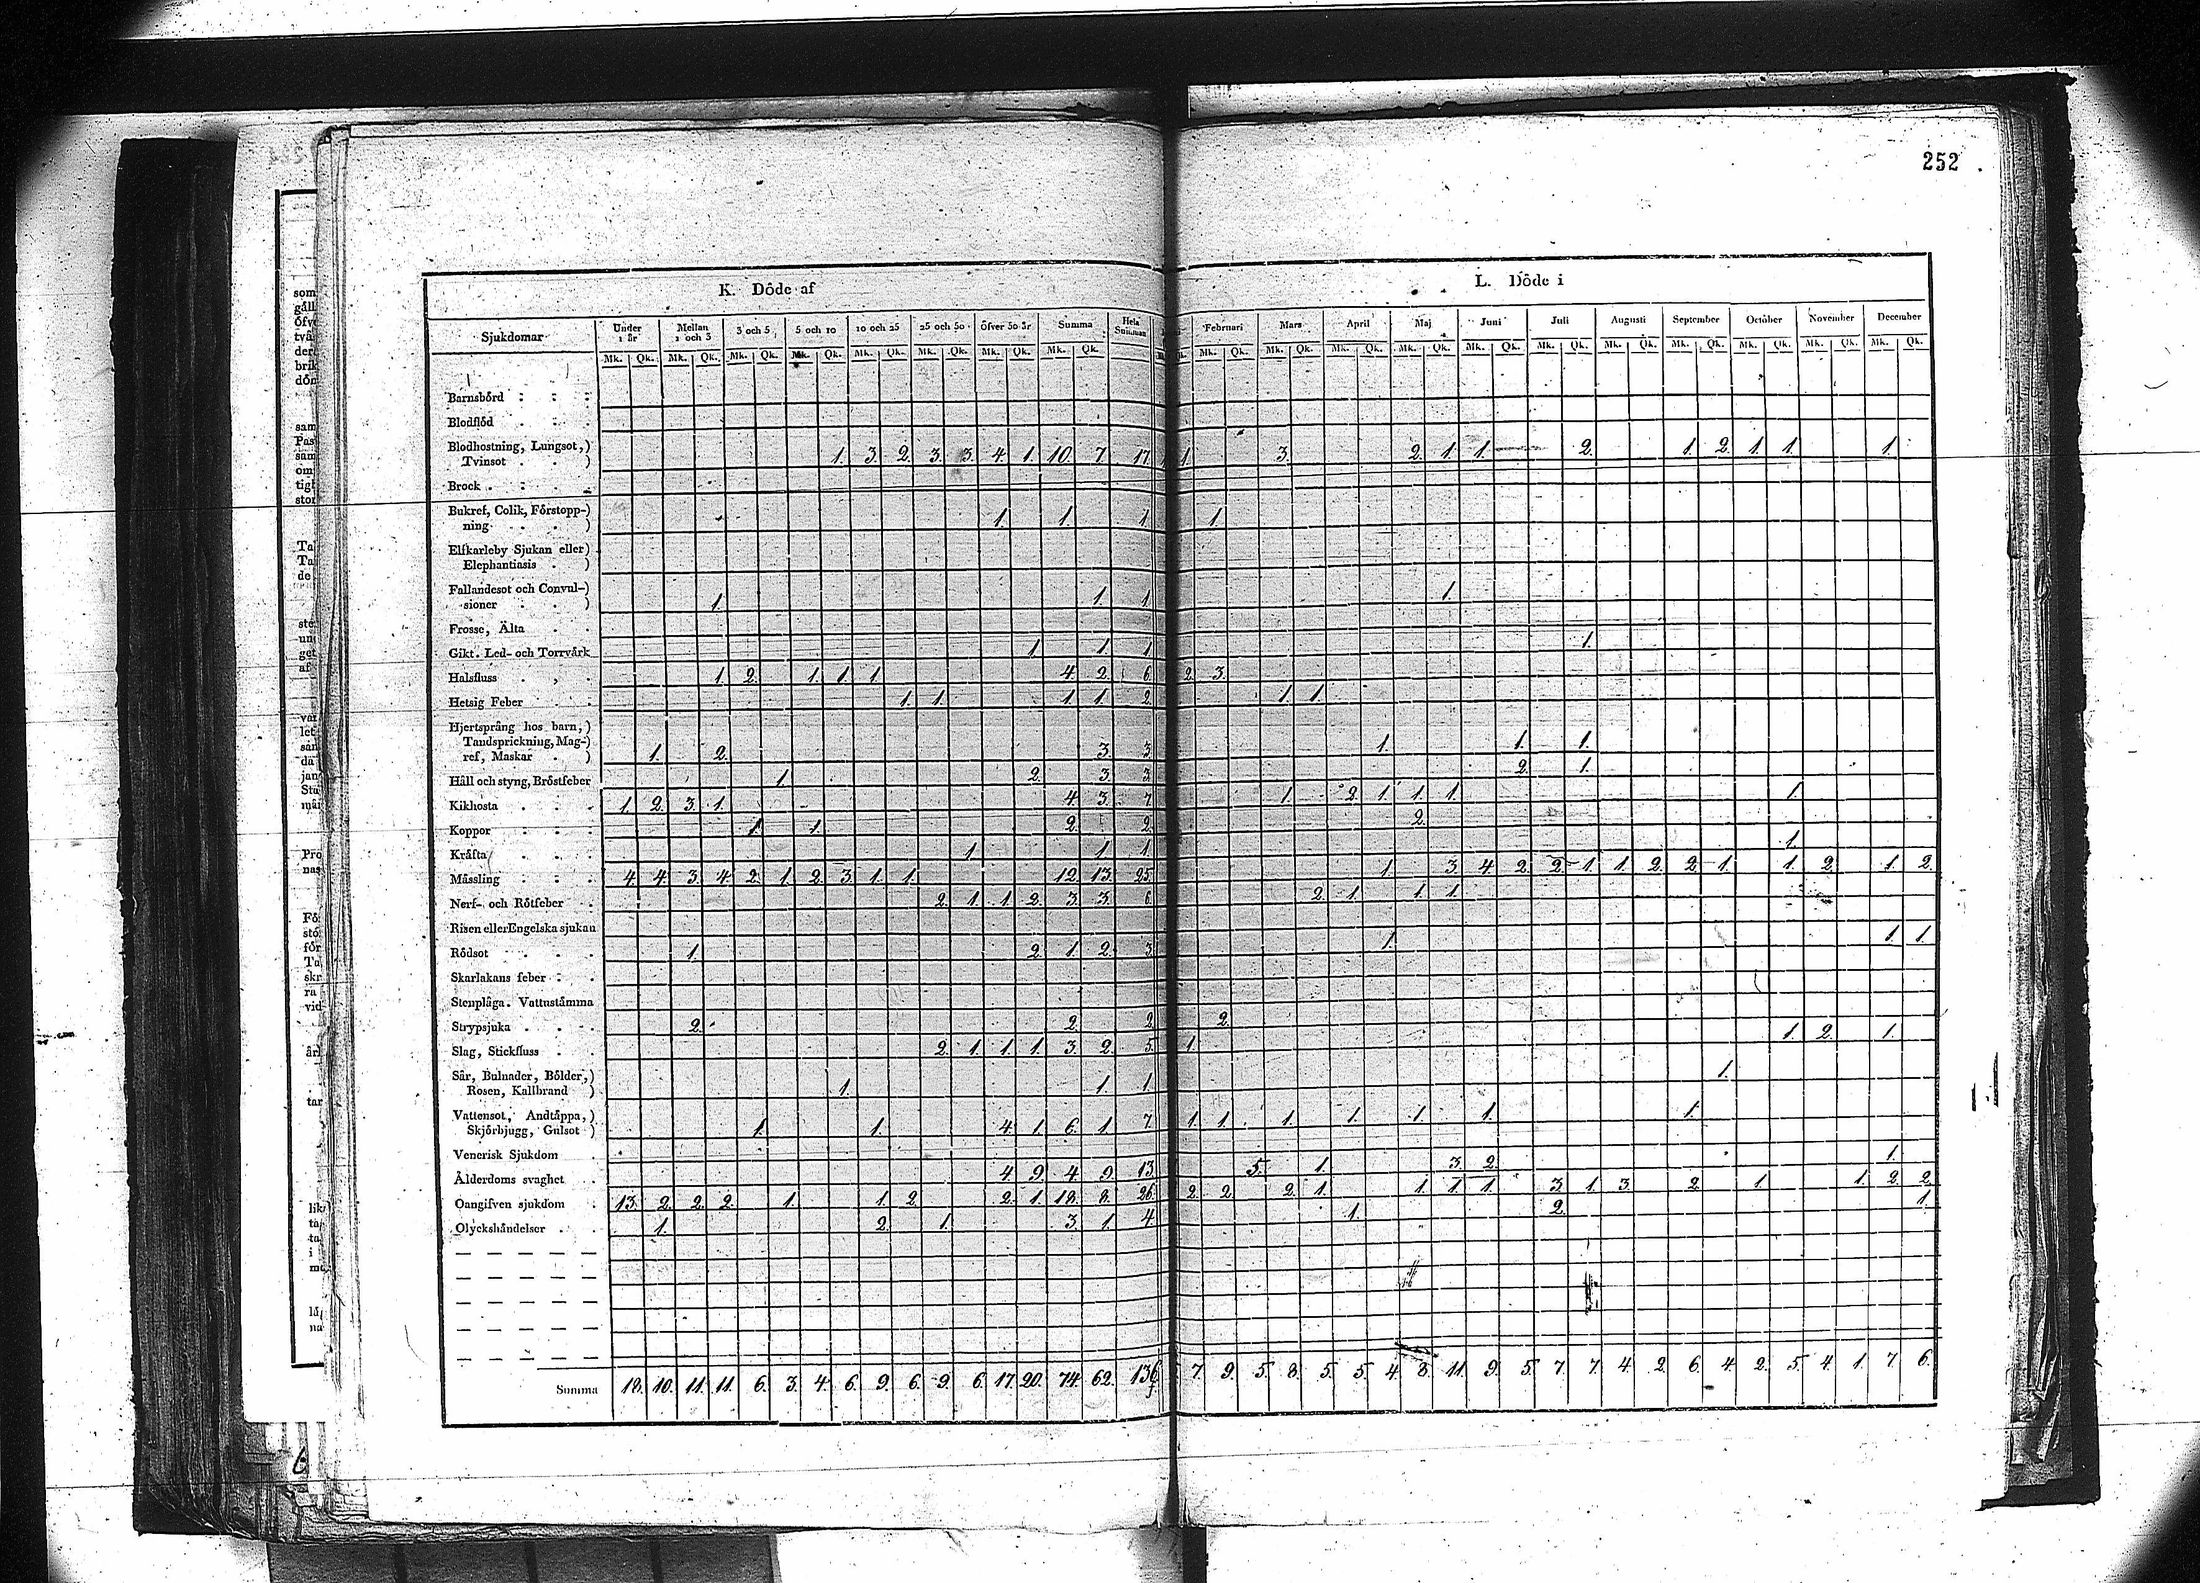 252
K. Döde af
L. Döde i
Sjukdomar Under 1 år Mellan 1 och 3 3 och 5 5 och 10 10 och 25 25 och 50 Öfver 50 år Summa Hela Summan Februari Mars April Maj Juni Juli Augusti September October November December
Mk. Qk. Mk. Qk. Mk. Qk. Mk. Qk. Mk. Qk. Mk. Qk. Mk. Qk. Mk. Qk. Mk. Qk. Mk. Qk. Mk. Qk. Mk. Qk. Mk. Qk. Mk. Qk. Mk. Qk. Mk. Qk. Mk. Qk. Mk. Qk. Mk. Qk.
Barnsbörd
Blodflöd
Blodhostning, Lungsot,)
Tvinsot . . ) 1. 3. 2. 3. 3. 4. 1. 10. 7. 17. 1. 1. 3. 2. 1. 1. 2. 1. 2. 1. 1. 1.
Brock
Bukref, Colik, Förstopp-)
ning . . ) 1. 1. 1. 1.
Elfkarleby Sjukan eller)
Elephantiasis . )
Fallandesot och Convul-)
sioner . . ) 1. 1. 1. 1.
Frosse, Älta
Gikt. Led- och Torrvärk 1 1. 1. 1.
Halsfluss 1. 2. 1. 1. 1. 4. 2. 6. 2. 3.
Hetsig Feber 1. 1. 1. 1. 2. 1. 1.
Hjertsprång hos barn,)
Tandsprickning, Mag-)
ref, Maskar . ) 1. 2. 3. 3. 1. 1. 1.
Håll och styng, Bröstfeber 1. 2. 3. 3. 2. 1.
Kikhosta 1. 2. 3. 1. 4. 3. 7. 1. 2. 1. 1. 1. 1.
Koppor 1. 1. 2. 2. 2.
Kräfta 1. 1. 1. 1.
Mässling 4. 4. 3. 4. 2. 1. 2. 3. 1. 1. 12. 13. 25. 1. 3. 4. 2. 2. 1. 1. 2. 2. 1. 1. 2. 1. 2.
Nerf- och Rötfeber 2. 1. 1. 2. 3. 3. 6. 2. 1. 1. 1.
Risen eller Engelska sjukan
Rödsot 1. 2. 1. 2. 3. 1. 1. 1.
Skarlakans feber
Stenplåga. Vattustämma
Strypsjuka 2. 2. 2. 2.
Slag, Stickfluss 2. 1. 1. 1. 3. 2. 5. 1. 1. 2. 1.
Sår, Bulnader, Bölder,)
Rosen, Kallbrand ) 1. 1. 1. 1.
Vattensot, Andtäppa, )
Skjörbjugg, Gulsot ) 1. 1. 4. 1. 6. 1. 7. 1. 1. 1. 1. 1. 1. 1.
Venerisk Sjukdom
Ålderdoms svaghet 4 9. 4 9. 13. 5. 1. 3. 2. 1.
Oangifven sjukdom 13. 2. 2. 2. 1. 1. 2. 2. 1. 18. 8. 26. 2. 2. 2. 1. 1. 1. 1. 3. 1. 3. 2. 1. 1. 2. 2.
Olyckshändelser 1. 2. 1. 3. 1. 4. 1. 2. 1.
Summa 18. 10. 11. 11. 6. 3. 4. 6. 9. 6. 9. 6. 17. 20. 74. 62. 136 7. 9. 5. 8. 5. 5. 4. 8. 11. 9. 5. 7. 7. 4. 2. 6. 4. 2. 5. 4. 1. 7. 6.